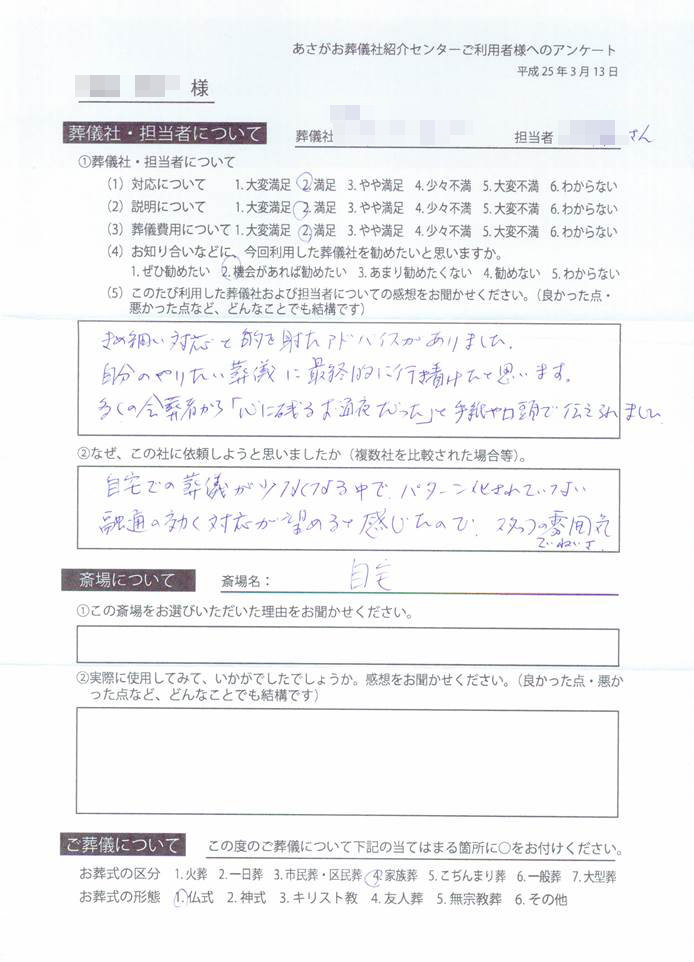 あさがお葬儀社紹介センターご利用者様へのアンケート
平成25年3月13日
様
葬儀社・担当者について 葬儀社 担当者 さん
①葬儀社・担当者について
(1) 対応について 1.大変満足 2.満足 3.やや満足 4.少々不満 5.大変不満 6.わからない
(2) 説明について 1.大変満足 2.満足 3.やや満足 4.少々不満 5.大変不満 6.わからない
(3) 葬儀費用について 1.大変満足 2.満足 3.やや満足 4.少々不満 5.大変不満 6.わからない
(4) お知り合いなどに、今回利用した葬儀社を勧めたいと思いますか。
1.ぜひ勧めたい 2.機会があれば勧めたい 3.あまり勧めたくない 4.勧めない 5.わからない
(5) このたび利用した葬儀社および担当者についての感想をお聞かせください。（良かった点・
悪かった点など、どんなことでも結構です）
きめ細い対応と的を射たアドバイスがありました。
自分のやりたい葬儀に最終的に行き着けたと思います。
多くの会葬者から「心に残るお通夜だった」と手紙や口頭で伝えられました
②なぜ、この社に依頼しようと思いましたか（複数社を比較された場合等）。
自宅での葬儀が少なくなる中で、パターン化されていない
融通の効く対応が望めると感じたので、スタッフの雰囲気
ていねいさ。
斎場について 斎場名： 自宅
①この斎場をお選びいただいた理由をお聞かせください。
②実際に使用してみて、いかがでしたでしょうか。感想をお聞かせください。（良かった点・悪か
った点など、どんなことでも結構です）
ご葬儀について この度のご葬儀について下記の当てはまる箇所に○をお付けください。
お葬式の区分 1.火葬 2.一日葬 3.市民葬・区民葬 4.家族葬 5.こぢんまり葬 6.一般葬 7.大型葬
お葬式の形態 1.仏式 2.神式 3.キリスト教 4.友人葬 5.無宗教葬 6.その他